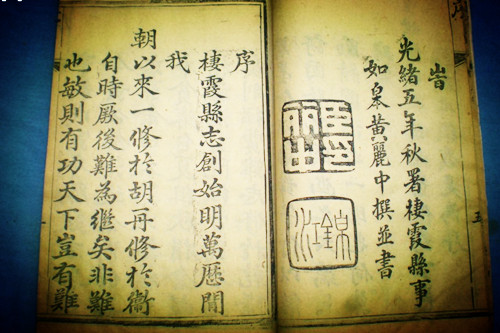 序
五
旹
光緒五年秋署棲霞縣事
如皋黃麗中撰並書
錦江
序
棲霞縣志創始明萬歷閒
我
朝以來一修於胡再修於衛
自時厥後難為繼矣非難
也敏則有功天下豈有難